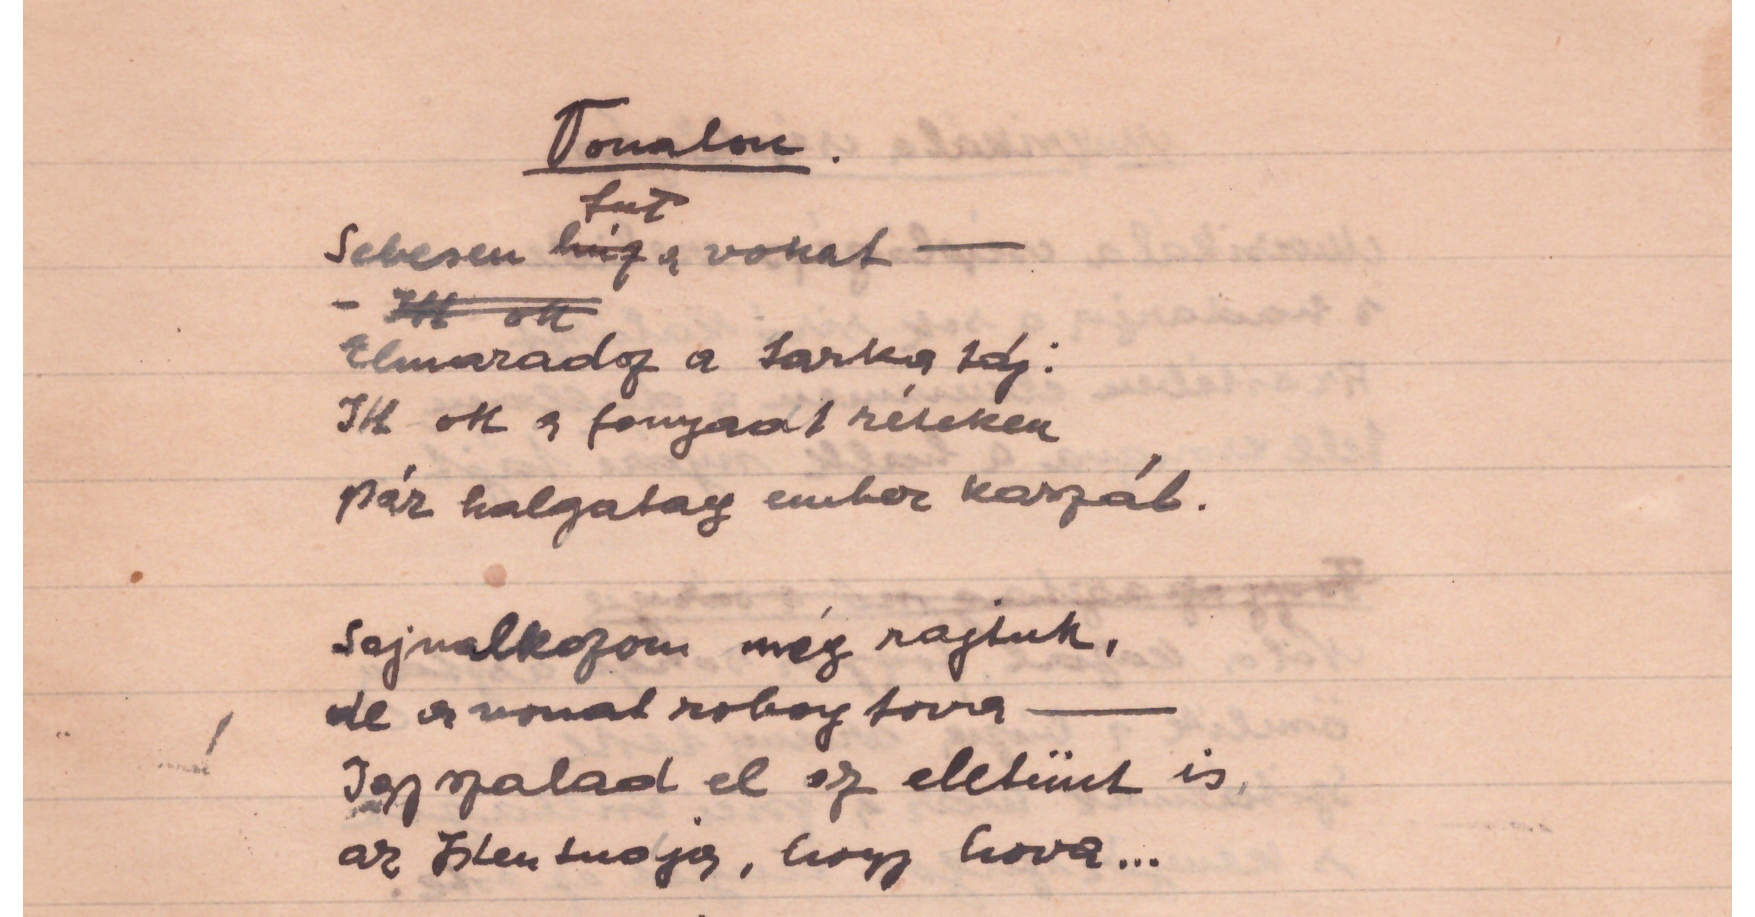 Vonaton.
fut
Sebesen húz a vonat —
- Itt ott
Elmaradoz a tarka táj:
Itt ott a fonyadt réteken
pár halgatag ember kaszál.
Sajnalkozom még rajtuk,
de a vonat robog tova —
Igy szalad el az eletünt is,
az Isten tudja, hogy hova...